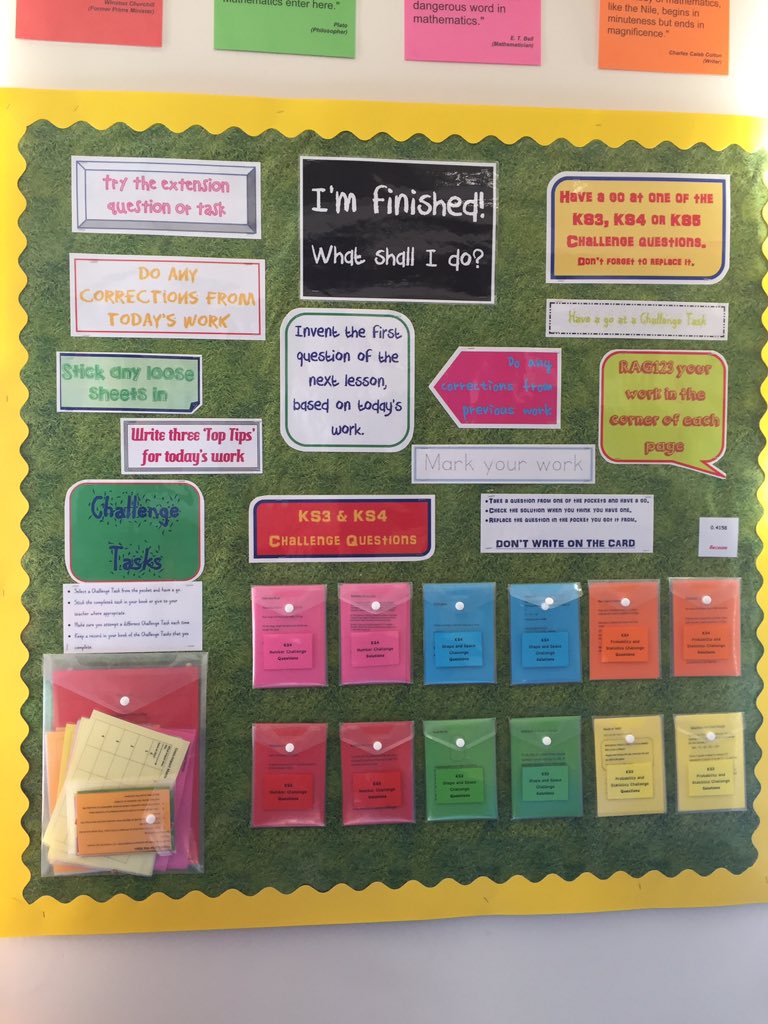 Winston Churchill
(Former Prime Minister)
Mathematics enter here."
Plato
(Philosopher)
dangerous word in
mathematics."
E. T. Bell
(Mathematician)
of mathematics,
like the Nile, begins in
minuteness but ends in
magnificence."
Charles Caleb Colton
(Writer)
try the extension
question or task
I'm finished!
What shall I do?
Have a go at one of the
KS3, KS4 or KS5
Challenge questions.
Don't forget to replace it.
DO ANY
CORRECTIONS FROM
TODAY'S WORK
Have a go at a Challenge Task
Invent the first
question of the
next lesson,
based on today's
work.
Do any
corrections from
previous work
Stick any loose
sheets in
RAG123 your
work in the
corner of each
page
Write three 'Top Tips'
for today's work
Mark your work
Challenge
Tasks
KS3 & KS4
Challenge Questions
• Take a question from one of the pockets and have a go.
• Check the solution when you think you have one.
• Replace the question in the pocket you got it from.
DON'T WRITE ON THE CARD
0.4158
Because
• Select a Challenge Task from the pocket and have a go.
• Stick the completed task in your book or give to your
teacher where appropriate.
• Make sure you attempt a different Challenge Task each time.
• Keep a record in your book of the Challenge Tasks that you
complete.
KS4
Number Challenge
Questions
KS4
Number Challenge
Solutions
KS4
Shape and Space
Challenge
Questions
KS4
Shape and Space
Challenge
Solutions
KS4
Probability and
Statistics Challenge
Questions
KS4
Probability and
Statistics Challenge
Solutions
KS3
Number Challenge
Questions
KS3
Number Challenge
Solutions
KS3
Shape and Space
Challenge
Questions
KS3
Shape and Space
Challenge
Solutions
KS3
Probability and
Statistics Challenge
Questions
KS3
Probability and
Statistics Challenge
Solutions